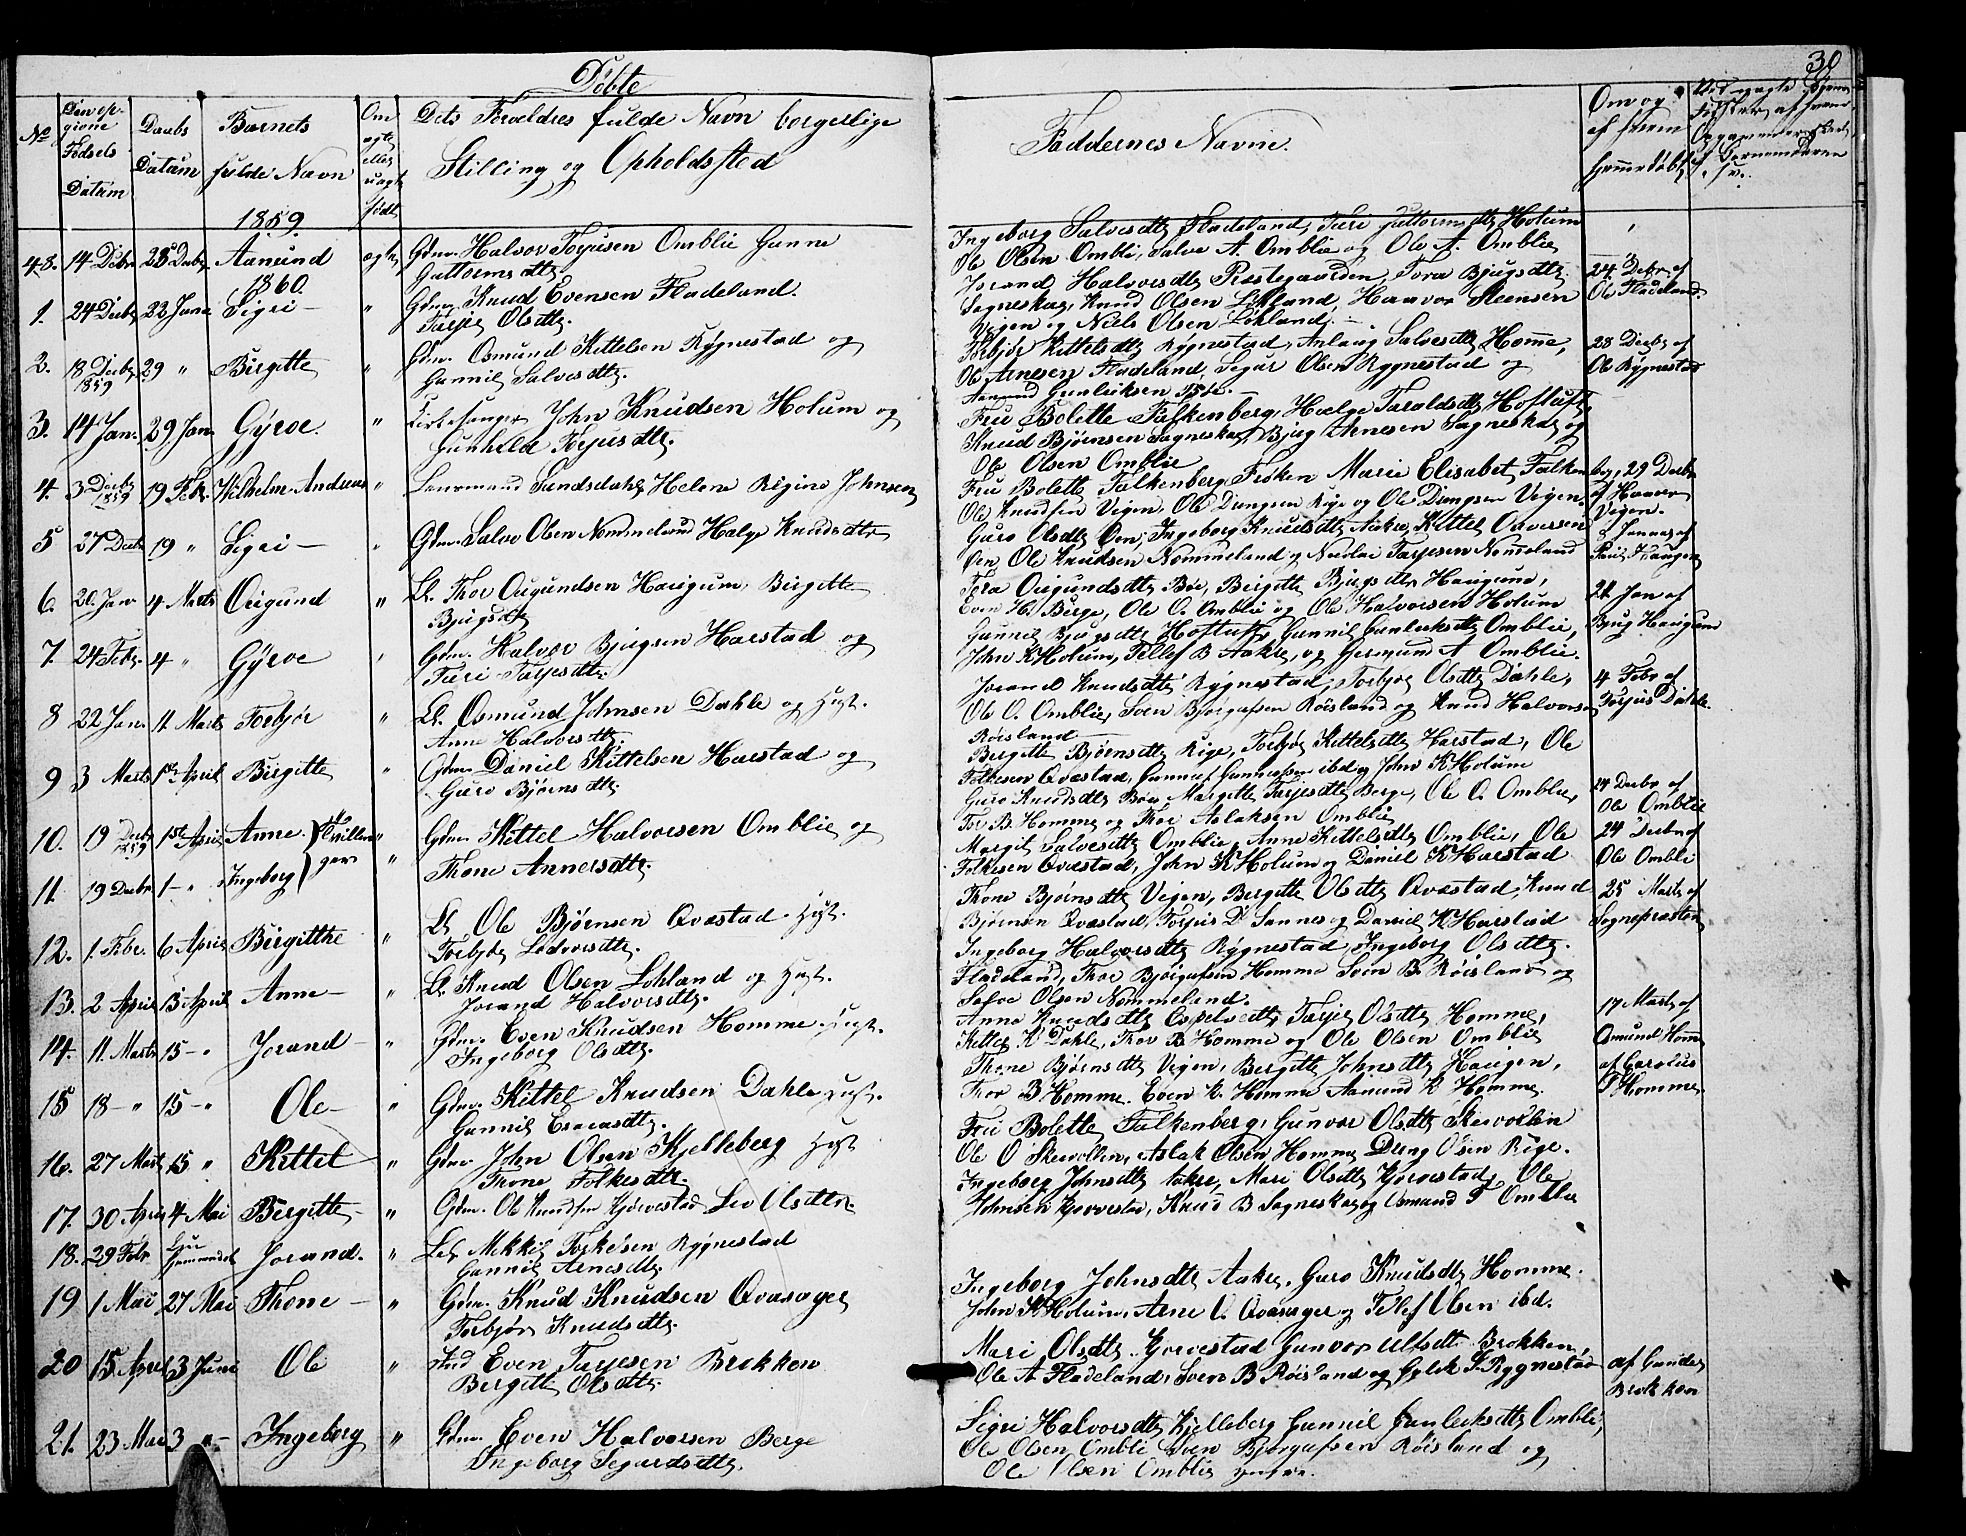 30
Døbte
No
Den opgivne Fødsels Datum
Daabs Datum
Barnets fulde Navn
1859.
Om ægte eller uægte født
Dets Forældres fulde Navn borgerlige
Stilling og Opholdsted
Faddernes Navne.
Om og af hvem hjemmedøbt
48. 14 Decbr 28 Decbr Aamund ægte Gdm. Halvor Torjusen Omblie Gunne
Guttormsdtr
Ingeborg Salvesdtr Fladeland, Turi Guttormsdtr Holum
Ole Olsen Ombli, Salve A. Omblie og Ole A. Omblie
1860.
1. 24 Decbr 22 Janr Sigri — " Gdm. Knud Evensen Fladeland.
Tarjer Olsdtr.
Jorand Halvorsdtr Præstegaarden, Tora Bjugsdtr
Sagneskar, Knud Olsen Løkland, Haavor Steensen
Vegen og Niels Olsen Løkland. —
24 Decbr af
Ole Fladeland.
2. 18 Decbr 1859 29 " Birgitte " Gdm. Osmund Kittelsen Rygnestad og
Gunnil Salvesdtr.
Torbjør Kittelsdtr Rygnestad, Anlaug Salvesdtr Homme,
Ole Arnesen Fladeland, Segur Olsen Rygnestad og
Aamund Gunleiksen
28 Decbr af
Ole Rygnestad
3. 14 Jan. 29 Jan. Gyroe. " Kirkesanger John Knudsen Holum og
Gunhild Torjusdtr.
Fru Bolette Falkenberg, Hælge Taraldsdtr Hoftuft,
Knud Bjørnsen Sagneskar, Bjug Arnesen Sagneskar og
Ole Olsen Omblie
4. 3 Decbr 1859 19 Febr. Wilhelm Andreas " Lensmand Sundsdahl Helene Regine Johnsen
Fru Bolette Falkenberg, Frøken Marie Elisabet Falkenberg,
Ole Knudsen Vigen, Ole Dungsen Rige og Ole Dungsen Vigen.
29 Decbr
af Haavor
Vigen.
5 27 Decbr 19 " Sigri — " Gdm. Salve Olsen Nommeland Halge Knudsdtr
Guro Olsdtr Øen, Ingeborg Knudsdtr Aakre, Kittel
Øen, Ole Knudsen Nommeland og Nicolai Tarjesen Nomeland
Januar af
Haugen
6. 20. Jan 4 Marts Ougund " Ll. Thor Ougundsen Haugum, Birgitte
Bjugsdtr
Tora Ougundsdtr Bøe, Bergitte Bjugsdtr Haugum,
Even H. Berge, Ole O. Omblie og Ole Halvorsen Holum
21 Jan af
Bjug Haugum
7. 24 Febr. 4 " Gyroe Gdm. Halvor Bjugsen Harstad og
Turi Tarjesdtr.
Gunnil Bjugsdtr Hoftuft, Gunnil Gunleiksdtr Omblie,
John K Holum, Tellef B Aakre, og Germund A Omblie.
8 22 Jan. 11 Marts Torbjør " Ll. Osmund Johnsen Dahle og Hust.
Anne Halvorsdtr.
Jorand Knudsdtr Rygnestad, Torbjør Olsdtr Dahle,
Ole O. Omblie, Sven Bjørgufsen Røisland og Knud Halvorsen
Røisland
4 Febr af
Torjus Dahle
9 3 Marts 1ste April Birgitte " Gdm. Daniel Kittelsen Harstad og
Guro Bjørnsdtr.
Bergitte Bjørnsdtr Rige, Torbjør Kittelsdtr Harstad, Ole
Folkesen Qvæstad, Gunnuf Gunnufsen ibd og John K Holum
10. 19 Decbr 1859 1ste April Anne. Tvillinger " Gdm. Kittel Halvorsen Omblie og
Thone Annersdtr.
Guro Knudsdtr Bøe, Margitte Tarjesdtr Berge, Ole O. Omblie,
Tor B. Homme og Thor Aslaksen Omblie
24 Decbr af
Ole Omblie
11. 19 Decbr 1 — " Ingeborg "
Margit Salvesdtr Omblie, Anne Kittelsdtr Omblie, Ole
Folkesen Qvæstad, John K Holum og Daniel K Harstad
24 Decbr af
Ole Ombli
12. 1. Febr. 6 April Birgitthe " Ll. Ole Bjørnsen Qvæstad. Hust.
Torbjør Lidvorsdtr.
Thone Bjørnsdtr Vigen, Bergitte Olsdtr Qvæstad, Knud
Bjørnsen Qvæstad, Torjus D. Sannes og Daniel K Harstad
25 Marts af
Sognepræsten
13. 2 April 13 April Anne — " Ll. Knud Olsen Løhland og Hust.
Jorand Halvorsdtr.
Ingeborg Halvorsdtr Rygnestad, Ingeborg Olsdtr
Fladeland, Thor Bjørgufsen Homme Svein B. Røisland og
Salve Olsen Nommeland.
14. 11. Marts 15 — " Jorand — " Gdm. Even Knudsen Homme. Hust.
Ingeborg Olsdtr.
Anne Knudsdtr Espetveit, Tarjer Olsdtr Homme,
Kittel K Dahle, Thor B Homme og Ole Olsen Omblie
17 Marts af
Osmund Homme
15 18 — " 15 — " Ole — " Gdm. Kittel Knudsen Dahle Hust.
Gunnil
Thone Bjørnsdtr Vigen, Bergitte Johnsdtr Haugen,
Thor B Homme. Even K. Homme Aamund K Homme.
af Carolus
T Homme
16. 27 Marts 15 " Kittel " Gdm. John Olsen Kjelleberg Hust
Thone Folkesdtr.
Fru Bolette Falkenberg, Gunvor Olsdtr Skevollen
Ole O Skevollen, Aslak Olsen Homme, Dung Olsen Rige.
17. 30 April 4 Mai Bergitte — " Gdm. Ole Knudsen Kjørvestad Liv Olsdtr.
Ingeborg Johnsdtr Aakre, Mari Olsdtr Kjørvestad, Ole
Johnsen Kjørvestad, Knud B Sagneskar og Osmund T Omblie
18. 29 Febr Jorand. " Lel. Mikkel Torkelsen Rygnestad
Gunnil Arnesdtr.
19 1 Mai 27 Mai Thone — " Gdm. Knud Knudsen Qvasager
Torbjør Knudsdtr.
Ingeborg Johnsdtr Aakre, Guro Knudsdtr Homme.
John K Holum, Arne O. Qvasager og Tellef Olsen ibd.
20 15 April 3 Juni Ole " Ind Even Tarjesen Brokken
Bergitte Olsdtr.
Mari Olsdtr. Kjørvestad Gunvor Ulfsdtr. Brokken,
Ole A Fladeland, Svein B Røisland og T. Rygnestad
af Gunder
Brokken
21. 23 Mai 3 " — Ingeborg " Gdm. Even Halvorsen Berge
Ingeborg Segurdsdtr.
Sigri Halvorsdtr Kjelleberg Gunnil Gunleiksdtr Ombli,
Ole Olsen Ombli Svein Bjørgufsen Røisland og
Ole Olsen Omblie yngre.